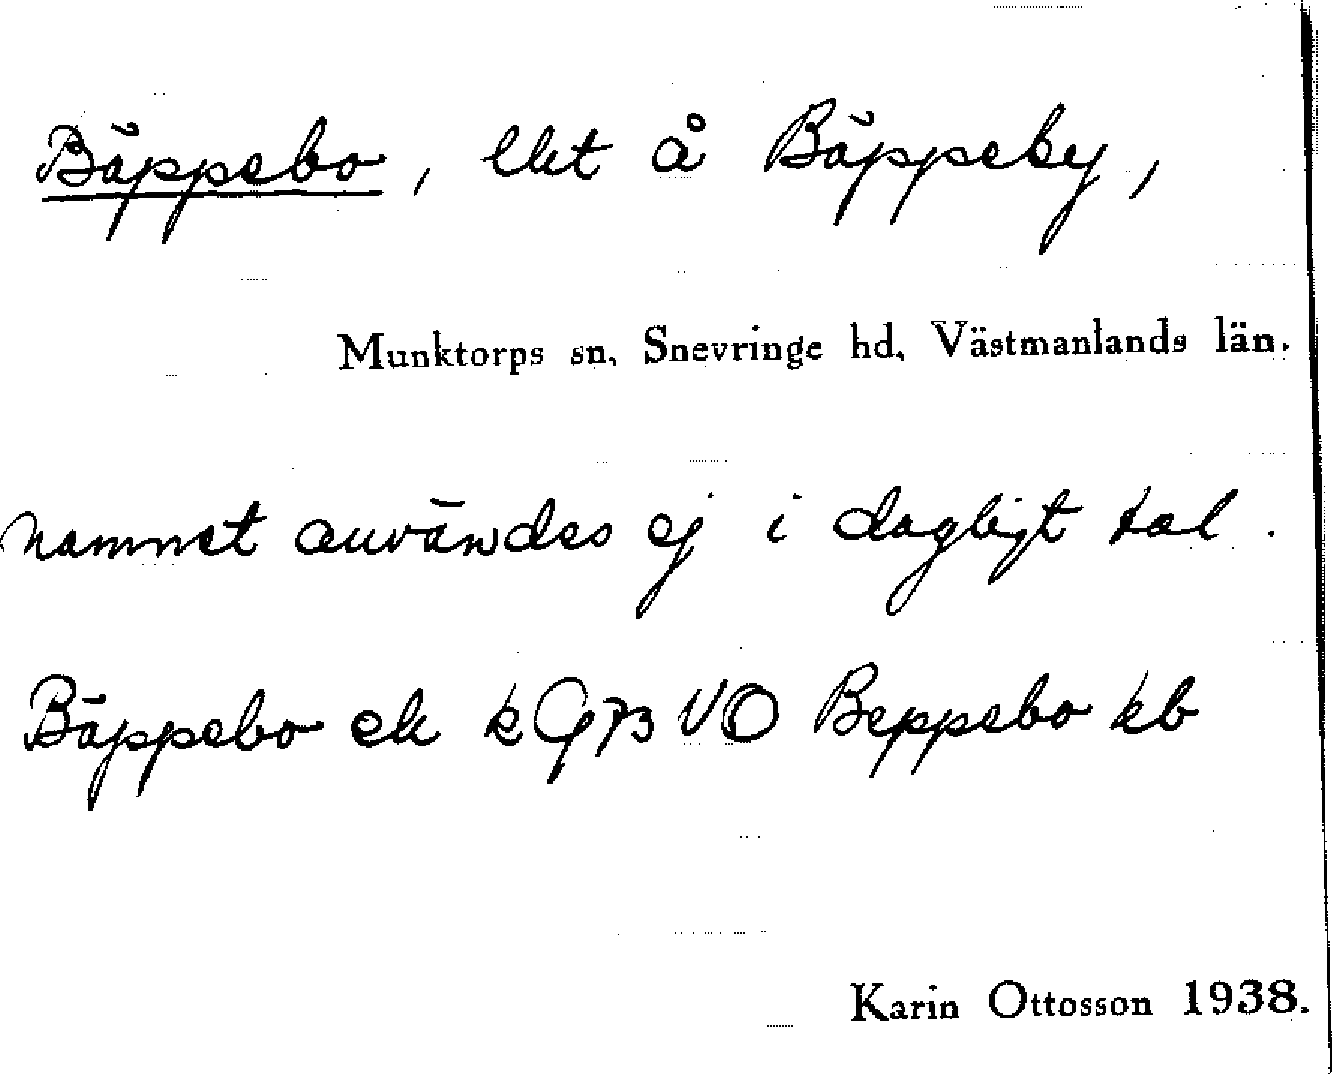 Bäppebo, llet å Bäppeby,
Munktorps sn, Snevringe hd, Västmanlands län.
namnet användes ej i dagligt tal.
Bäppebo ek k G73 VO Beppebo kb
Karin Ottosson 1938.